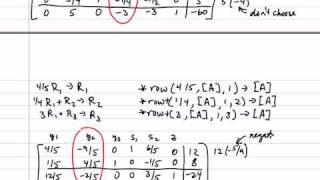 0 5 0 -3 -3 1 | -60
don't choose
4/5 R₁ → R₁ *row(4/5, [A], 1) → [A]
1/4 R₁ + R₂ → R₂ *row+(1/4, [A], 1, 2) → [A]
3 R₁ + R₃ → R₃ *row+(3, [A], 1, 3) → [A]
y₁ y₂ y₃ s₁ s₂ z
4/5 -9/5 0 1 6/5 0 | 12 12(-5/9)
1/5 4/5 1 0 -1/5 0 | 8
12/5 -2/5 0 0 3/5 1 | -24